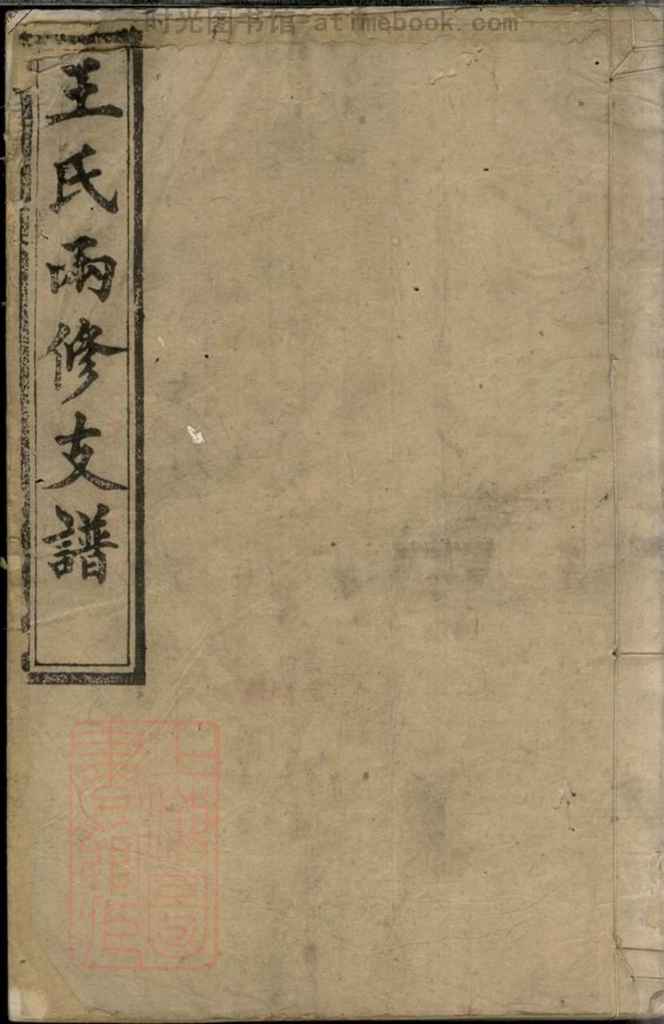 时光图书馆-atimebook.com
王氏兩修支譜